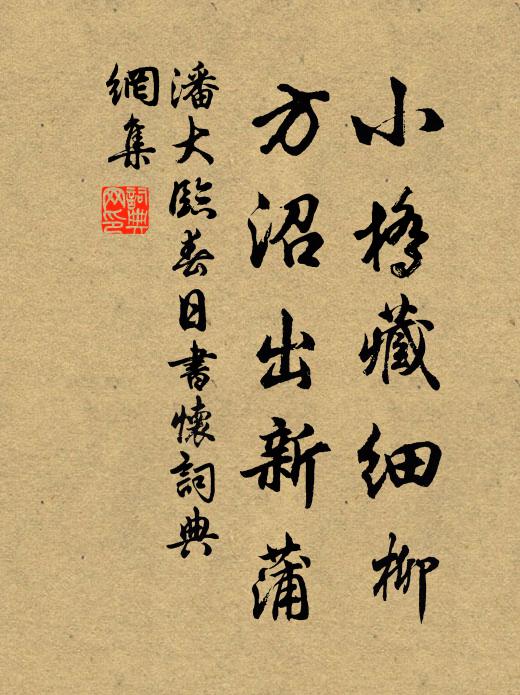 小橋藏細柳
方沼出新蒲
潘大臨春日書懷詞典
網集
詞典
網印